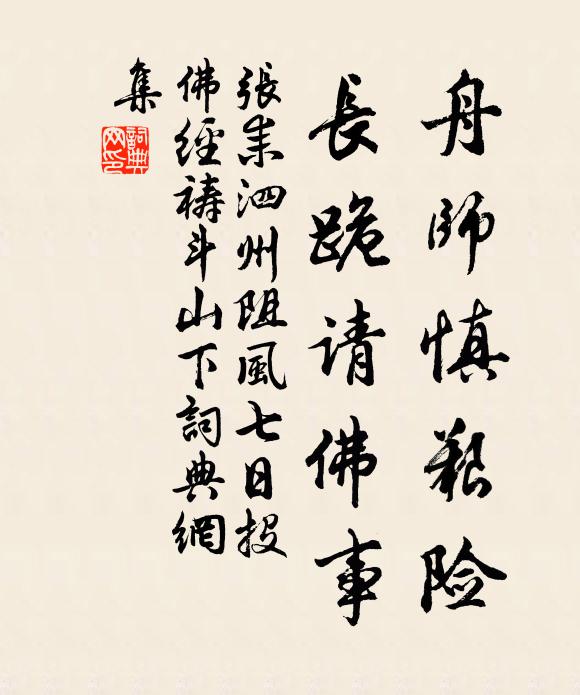 舟师慎艰险
長跪请佛事
張耒泗州阻風七日投
佛經祷斗山下詞典網
集
詞典网印